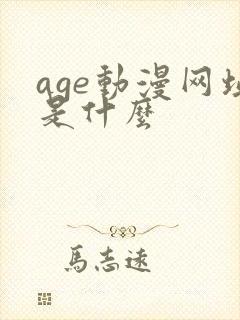 age動漫网址
是什麼
馬志遠